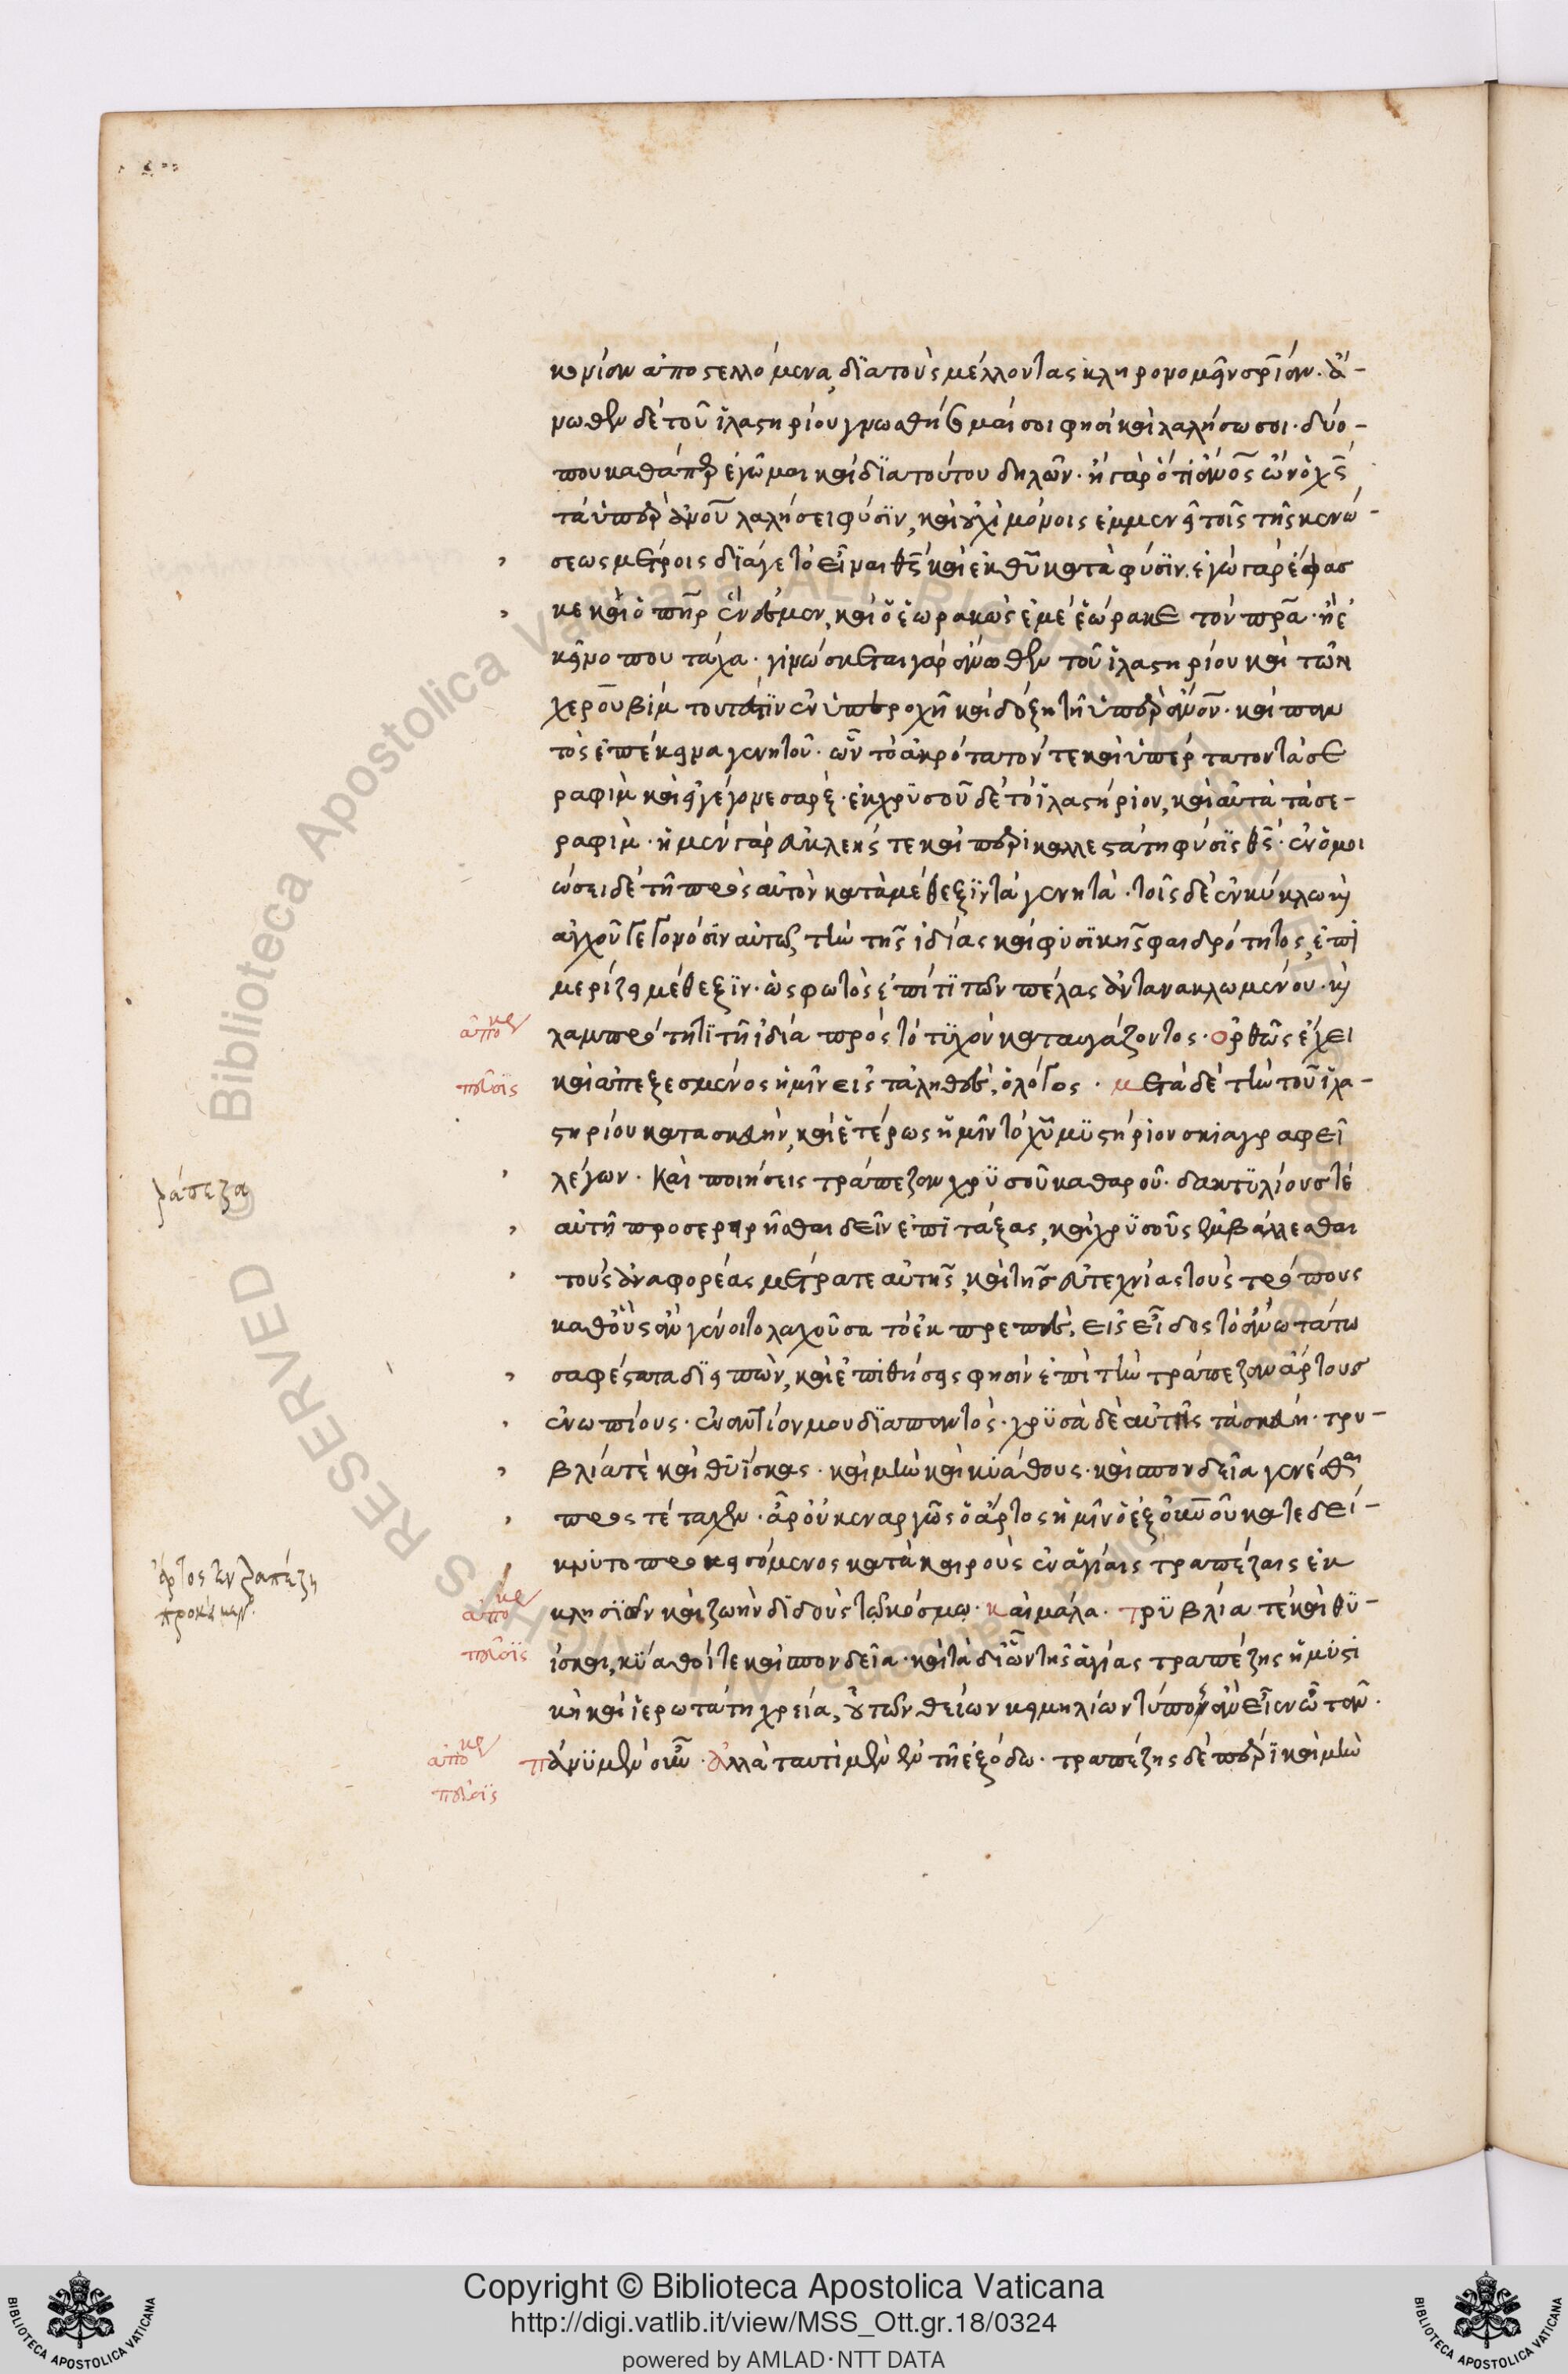 κονίαν ἀποστελλόμενα, διὰ τοὺς μέλλοντας κληρονομεῖν σρίαν. ἄ-
νωθεν δὲ τοῦ ἱλαστηρίου γνωσθήσομαί σοι φησὶ καὶ λαλήσω σοι. δύο-
που καθάπερ ἐγῶμαι καὶ διὰ τούτου δηλῶν. ἢ γὰρ ὅτι ἄνος ὢν ὁ χς
τὰ ὑπὲρ ἄνου λαλήσει φύσιν, καὶ οὐχὶ μόνοις ἐμμενεῖ τοῖς τῆς κενώ-
σεως μέτροις διά γε τὸ εἶναι θς καὶ ἐκ θυ κατὰ φύσιν. ἐγὼ γὰρ ἔφασ
κε καὶ ὁ πηρ ἕν ἐσμεν, καὶ ὁ ἑωρακὼς ἐμὲ ἑώρακε τὸν πρα. ἢ ἐ
κεῖνο που τάχα. γινώσκεται γὰρ ἄνωθεν τοῦ ἱλαστηρίου καὶ τῶν
χερουβὶμ τουτέστιν ἐν ὑπεροχῆ καὶ δόξη τῆ ὑπὲρ ἄνον. καὶ παν
τὸς ἐπέκεινα γενητοῦ. ὧν τὸ ἀκρότατόν τε καὶ ὑπέρτατον τὰ σε
ραφὶμ καὶ εἰ γέγονε σάρξ. ἐκ χρυσοῦ δὲ τὸ ἱλαστήριον, καὶ αὐτὰ τὰ σε-
ραφὶμ. ἡ μὲν γὰρ εὐκλεής τε καὶ περικαλλεστάτη φύσις θς. ἐνόμοι
ώσει δὲ τῆ πρὸς αὐτὸν κατὰ μέθεξιν τὰ γενητὰ. τοῖς δὲ ἐν κύκλω καὶ
ἀγχοῦ γεγονόσιν αὐτῶ, τὴν τῆς ἰδίας καὶ φυσικῆς φαιδρότητος, ἐπι
μερίζει μέθεξιν. ὡς φωτὸς ἐπί τι τῶν πέλας ἀντανακλωμένου. καὶ
λαμπρότητι τῆ ἰδία πρὸς τὸ τυχὸν καταυγάζοντος. ὀρθῶς ἔχει
καὶ ἀπεξεσμένος ἡμῖν εἰς τἀληθὲς, ὁ λόγος. μετὰ δὲ τὴν τοῦ ἱλα-
στηρίου κατασκευὴν, καὶ ἑτέρως ἡμῖν τὸ χυ μυστήριον σκιαγραφεῖ
λέγων. Καὶ ποιήσεις τράπεζαν χρυσοῦ καθαροῦ. δακτυλίους τέ
αὐτῆ προσερηρῆσθαι δεῖν ἐπιτάξας, καὶ χρυσοῦς ἐμβάλλεσθαι
τοὺς ἀναφορέας μέτρα τε αὐτῆς, καὶ τῆς εὐτεχνίας τοὺς τρόπους
καθοὓς ἂν γένοιτο λαχοῦσα τὸ ἐκπρεπὲς, εἰς εἶδος τὸ ἀνωτάτω
σαφέστατα διειπὼν, καὶ ἐπιθήσεις φησὶν ἐπὶ τὴν τράπεζαν ἄρτους
ἐνωπίους. ἐναντίον μου διαπαντὸς. χρυσὰ δὲ αὐτῆς τὰ σκεύη. τρυ-
βλία τὲ καὶ θυΐσκας. καὶ μὴν καὶ κυάθους. καὶ σπονδεῖα γενέσθαι
προστέταχεν. ἆρ' οὐκ ἐναργῶς ὁ ἄρτος ἡμῖν ὁ ἐξ οὐνοῦ κατεδεί-
κνυτο προκεισόμενος κατὰ καιροὺς ἐν ἁγίαις τραπέζαις ἐκ
κλησιῶν καὶ ζωὴν διδοὺς τῶ κόσμω. καὶ μάλα. τρυβλία τὲ καὶ θυ-
ίσκαι, κύαθοί τε καὶ σπονδεῖα. καὶ τὰ δι' ὧν τῆς ἁγίας τραπέζης ἡ μυστι
κὴ καὶ ἱερωτάτη χρεία, οὐ τῶν θείων κειμηλίων τύπον ἂν εἶεν ὦ τᾶν.
πάνυ μὲν οὖν. ἀλλὰ ταυτὶ μὲν ἐν τῆ ἐξόδω. τραπέζης δὲ πέρι καὶ μὴν
ἀπόκρ
πεῦσις
τράπεζα
ἄρτος ἐν τραπέζη
προκείμεν
ἀπόκρ
πεῦσις
ἀπόκρ
πεῦσις
Biblioteca Apostolica Vaticana
ALL RIGHTS RESERVED ©
Copyright © Biblioteca Apostolica Vaticana
http://digi.vatlib.it/view/MSS_Ott.gr.18/0324
powered by AMLAD·NTT DATA
BIBLIOTECA APOSTOLICA VATICANA
BIBLIOTECA APOSTOLICA VATICANA